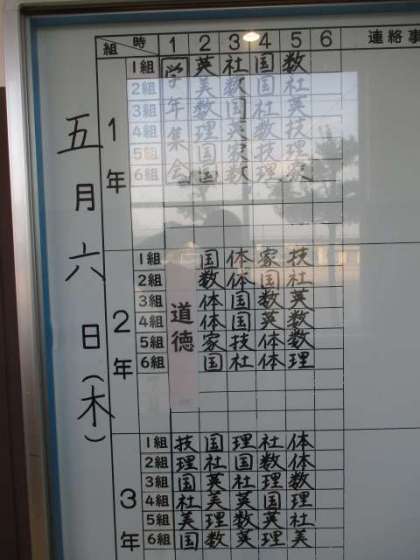 組 時 1 2 3 4 5 6 連絡事
五月六日(木)
1年
学年集会
1組 英 社 国 数
2組 美 数 国 社
3組 数 国 社 英
4組 理 英 数 技
5組 国 家 技 理
6組 国 数 理
2年
道徳
1組 国 体 家 技
2組 数 体 国 社
3組 体 国 数 英
4組 体 国 英 数
5組 家 技 体 数
6組 国 社 体 理
3年
1組 技 国 理 社 体
2組 理 社 国 数 体
3組 国 英 社 理 数
4組 社 美 英 国 理
5組 美 理 数 英 社
6組 国 数 英 理 美